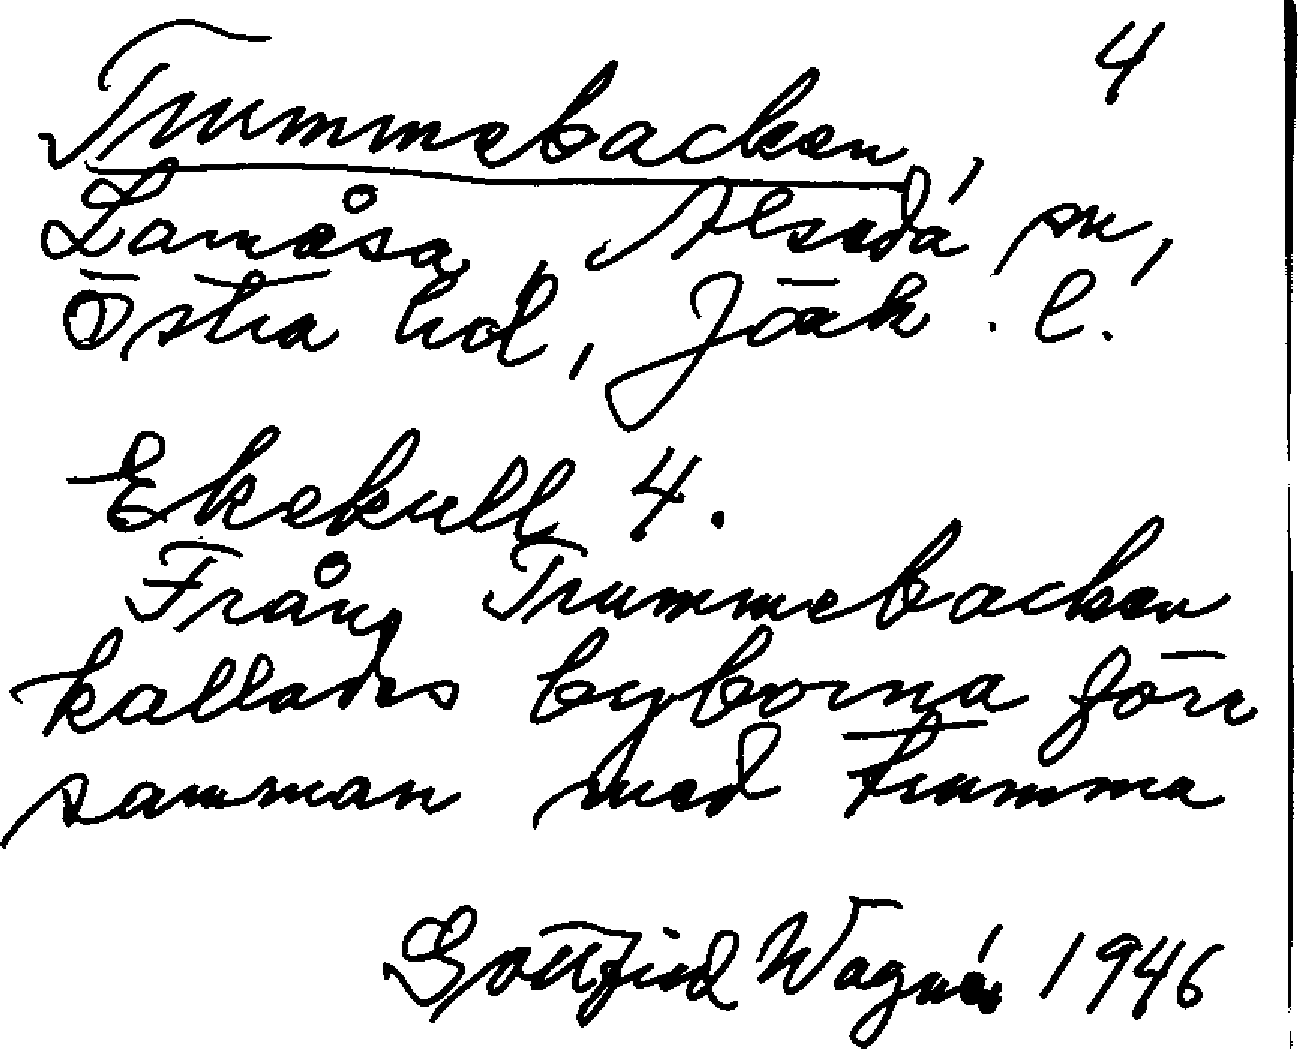 4
Trummebacken,
Lamåsa, Alseda sn,
Östra hd, Jönk. l.
Ekekull 4.
Från Trummebacken
kallades byborna förr
samman med trumma
Gottfrid Wagnér 1946